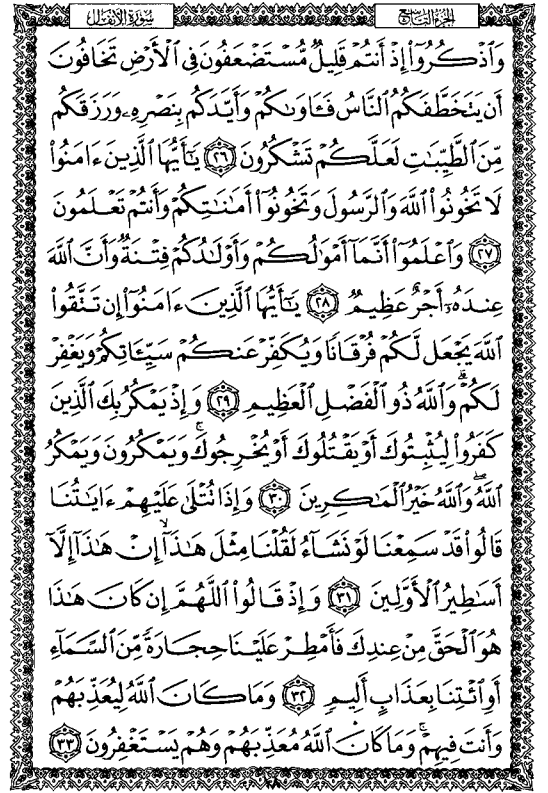 الجُزءُ التَّاسِعُ
سُورَةُ الأَنفَالِ
وَٱذْكُرُوٓا۟ إِذْ أَنتُمْ قَلِيلٌ مُّسْتَضْعَفُونَ فِى ٱلْأَرْضِ تَخَافُونَ
أَن يَتَخَطَّفَكُمُ ٱلنَّاسُ فَـَٔاوَىٰكُمْ وَأَيَّدَكُم بِنَصْرِهِۦ وَرَزَقَكُم
مِّنَ ٱلطَّيِّبَـٰتِ لَعَلَّكُمْ تَشْكُرُونَ ٢٦ يَـٰٓأَيُّهَا ٱلَّذِينَ ءَامَنُوا۟
لَا تَخُونُوا۟ ٱللَّهَ وَٱلرَّسُولَ وَتَخُونُوٓا۟ أَمَـٰنَـٰتِكُمْ وَأَنتُمْ تَعْلَمُونَ
٢٧ وَٱعْلَمُوٓا۟ أَنَّمَآ أَمْوَٰلُكُمْ وَأَوْلَـٰدُكُمْ فِتْنَةٌ وَأَنَّ ٱللَّهَ
عِندَهُۥٓ أَجْرٌ عَظِيمٌ ٢٨ يَـٰٓأَيُّهَا ٱلَّذِينَ ءَامَنُوٓا۟ إِن تَتَّقُوا۟
ٱللَّهَ يَجْعَل لَّكُمْ فُرْقَانًا وَيُكَفِّرْ عَنكُمْ سَيِّـَٔاتِكُمْ وَيَغْفِرْ
لَكُمْ ۗ وَٱللَّهُ ذُو ٱلْفَضْلِ ٱلْعَظِيمِ ٢٩ وَإِذْ يَمْكُرُ بِكَ ٱلَّذِينَ
كَفَرُوا۟ لِيُثْبِتُوكَ أَوْ يَقْتُلُوكَ أَوْ يُخْرِجُوكَ ۚ وَيَمْكُرُونَ وَيَمْكُرُ
ٱللَّهُ ۖ وَٱللَّهُ خَيْرُ ٱلْمَـٰكِرِينَ ٣٠ وَإِذَا تُتْلَىٰ عَلَيْهِمْ ءَايَـٰتُنَا
قَالُوا۟ قَدْ سَمِعْنَا لَوْ نَشَآءُ لَقُلْنَا مِثْلَ هَـٰذَآ ۙ إِنْ هَـٰذَآ إِلَّآ
أَسَـٰطِيرُ ٱلْأَوَّلِينَ ٣١ وَإِذْ قَالُوا۟ ٱللَّهُمَّ إِن كَانَ هَـٰذَا
هُوَ ٱلْحَقَّ مِنْ عِندِكَ فَأَمْطِرْ عَلَيْنَا حِجَارَةً مِّنَ ٱلسَّمَآءِ
أَوِ ٱئْتِنَا بِعَذَابٍ أَلِيمٍ ٣٢ وَمَا كَانَ ٱللَّهُ لِيُعَذِّبَهُمْ
وَأَنتَ فِيهِمْ ۚ وَمَا كَانَ ٱللَّهُ مُعَذِّبَهُمْ وَهُمْ يَسْتَغْفِرُونَ ٣٣